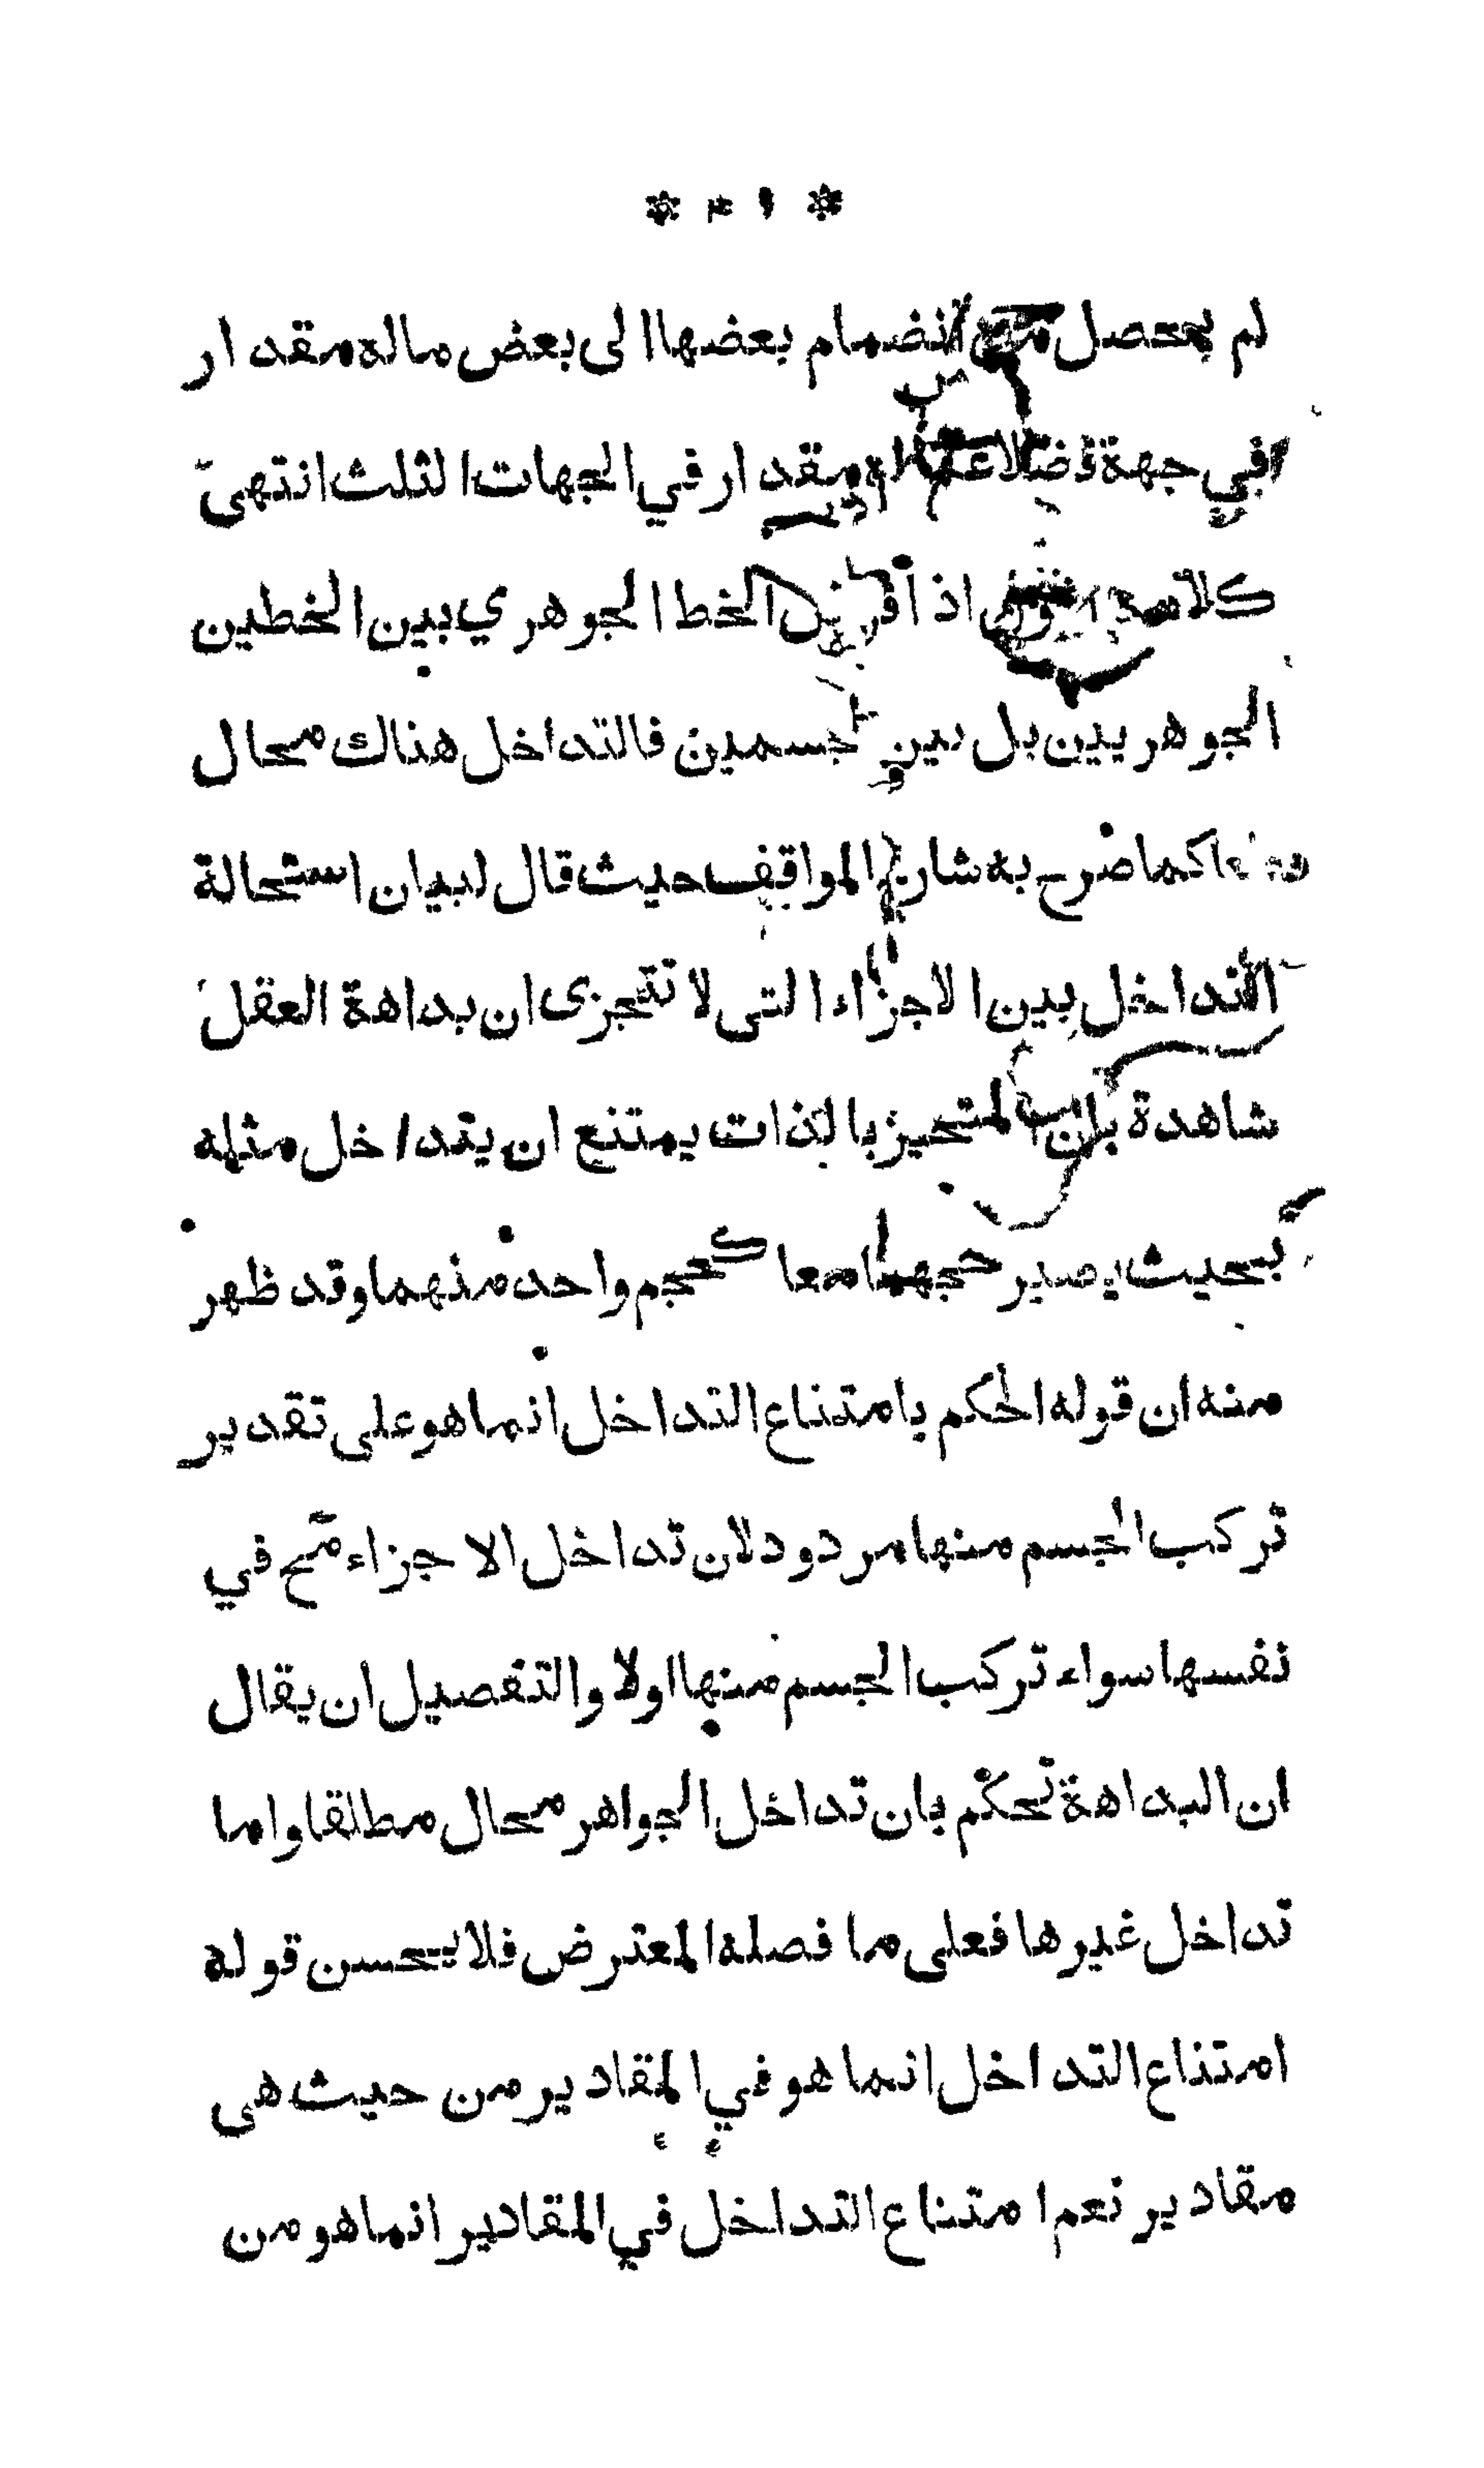 لم يحصل من انضمام بعضها الى بعض ماله مقدار
في جهة فضلا عما له مقدار في الجهات الثلث انتهى
كلامه اذا فرض الخط الجوهري بين الخطين
الجوهريين بل بين جسمين فالتداخل هناك محال
كما صرح به شارح المواقف حيث قال لبيان استحالة
التداخل بين الاجزاء التى لا تتجزى ان بداهة العقل
شاهدة بان المتحيز بالذات يمتنع ان يتداخل مثله
بحيث يصير حجمهما معا كحجم واحد منهما وقد ظهر
منه ان قوله الحكم بامتناع التداخل انما هو على تقدير
تركب الجسم منها مردود لان تداخل الاجزاء مح في
نفسها سواء تركب الجسم منها اولا والتفصيل ان يقال
ان البداهة تحكم بان تداخل الجواهر محال مطلقا واما
تداخل غيرها فعلى ما فصله المعترض فلا يحسن قوله
امتناع التداخل انما هو في المقادير من حيث هى
مقادير نعم امتناع التداخل في المقادير انما هو من